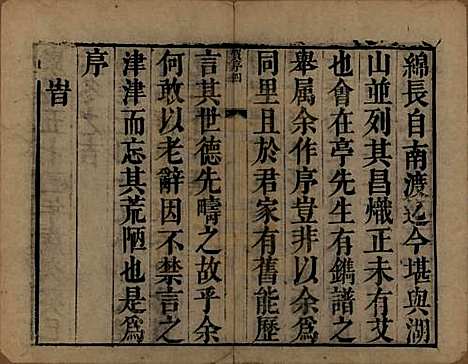 綿長自南渡迄今堪與湖
山並列其昌熾正未有艾
也會在亭先生有鐫譜之
舉属余作序豈非以余爲
同里且於君家有舊能歷
言其世德先疇之故乎余
何敢以老辭因不禁言之
津津而忘其荒陋也是爲
序
旹